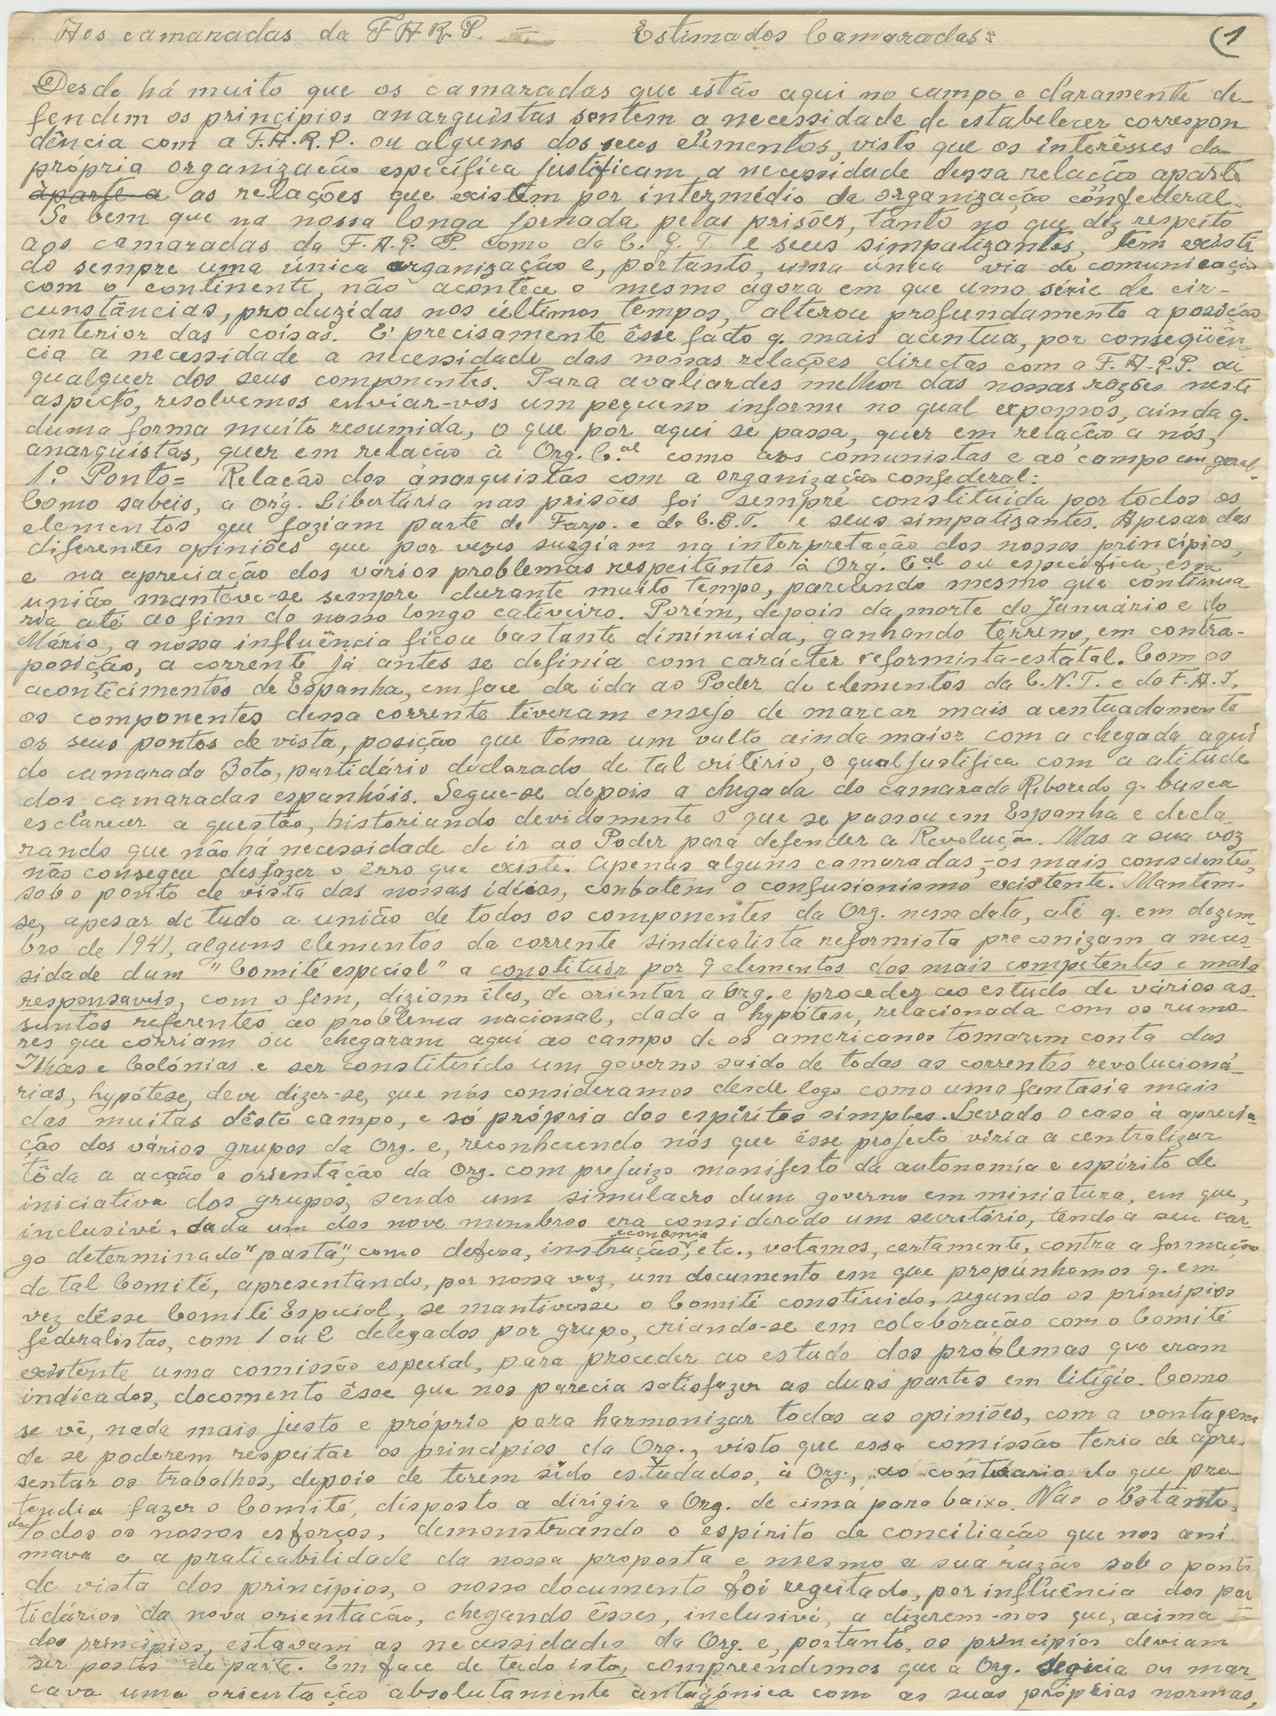 Aos camaradas da F.A.R.P. = Estimados Camaradas: (1
Desde há muito que os camaradas que estão aqui no campo e claramente de-
fendem os princípios anarquistas sentem a necessidade de estabelecer correspon
dência com a F.A.R.P. ou alguns dos seus elementos, visto que os interêsses da
própria organização específica justificam a necessidade dessa relação aparte
àparte a as relações que existem por intermédio da organização confederal.
Se bem que na nossa longa jornada pelas prisões, tanto no que diz respeito
aos camaradas da F.A.R.P. como da C.G.T. e seus simpatizantes, tem existi
do sempre uma única organização e, portanto, uma única via de comunicação
com o continente, não acontece o mesmo agora em que uma série de cir-
cunstâncias, produzidas nos últimos tempos, alterou profundamente a posição
anterior das coisas. É precisamente êsse facto q. mais acentua, por conseqüên
cia a necessidade a necessidade das nossas relações directas com a F.A.R.P. ou
qualquer dos seus componentes. Para avaliardes melhor das nossas razões neste
aspecto, resolvemos enviar-vos um pequeno informe no qual expomos, ainda q.
duma forma muito resumida, o que por aqui se passa, quer em relação a nós,
anarquistas, quer em relação à Org. C.al como aos comunistas e ao campo em geral.
1.º Ponto = Relação dos anarquistas com a organização confederal:
Como sabeis, a Org. Libertária nas prisões foi sempre constituída por todos os
elementos que faziam parte da Farp. e da C.G.T. e seus simpatizantes. Apesar das
diferentes opiniões que por vezes surgiam na interpretação dos nossos princípios,
e na apreciação dos vários problemas respeitantes à Org. C.al ou específica, essa
união manteve-se sempre durante muito tempo, parecendo mesmo que continua
ria até ao fim do nosso longo cativeiro. Porém, depois da morte do Januário e do
Mário, a nossa influência ficou bastante diminuída, ganhando terreno, em contra-
posição, a corrente já antes se definia com carácter reformista-estatal. Com os
acontecimentos de Espanha, em face da ida ao Poder de elementos da C.N.T. e da F.A.I.
os componentes dessa corrente tiveram ensejo de marcar mais acentuadamente
os seus pontos de vista, posição que toma um vulto ainda maior com a chegada aqui
do camarada Boto, partidário declarado de tal critério, o qual justifica com a atitude
dos camaradas espanhóis. Segue-se depois a chegada do camarada Riboredo q. busca
esclarecer a questão, historiando devidamente o que se passou em Espanha e decla-
rando que não há necessidade de ir ao Poder para defender a Revolução. Mas a sua voz
não consegue desfazer o êrro que existe. Apenas alguns camaradas,-os mais conscientes,
sob o ponto de vista das nossas idéias, combatem o confusionismo existente. Mantem-
se, apesar de tudo a união de todos os componentes da Org. nessa data, até q. em dezem-
bro de 1941, alguns elementos da corrente sindicalista reformista preconizam a neces-
sidade dum "Comité especial" a constituir por 9 elementos dos mais competentes e mais
responsaveis, com o fim, diziam êles, de orientar a Org. e proceder ao estudo de vários as-
suntos referentes ao problema nacional, dada a hypótese, relacionada com os rumo-
res que corriam ou chegaram aqui ao campo de os americanos tomarem conta das
Ilhas e Colónias e ser constituído um governo saído de todas as correntes revolucioná-
rias, hypótese, deve dizer-se, que nós consideramos desde logo como uma fantasia mais
das muitas dêste campo, e só própria dos espíritos simples. Levado o caso à aprecia-
ção dos vários grupos da Org. e, reconhecendo nós que êsse projecto viria a centralizar
tôda a acção e orientação da Org. com prejuizo manifesto da autonomia e espírito de
iniciativa dos grupos, sendo um simulacro dum governo em miniatura, em que,
inclusivé, cada um dos nove membros era considerado um secretário, tendo a seu car-
economia
go determinada "pasta", como defesa, instrução, etc., votamos, certamente, contra a formação
de tal Comité, apresentando, por nossa vez, um documento em que propúnhamos q. em
vez dêsse Comité Especial, se mantivesse o Comité constituído, segundo os princípios
federalistas, com 1 ou 2 delegados por grupo, criando-se em colaboração com o Comité
existente uma comissão especial, para proceder ao estudo dos problemas que eram
indicados, documento êsse que nos parecia satisfazer as duas partes em litígio. Como
se vê, nada mais justo e próprio para harmonizar todas as opiniões, com a vantagem
de se poderem respeitar os princípios da Org., visto que essa comissão teria de apre-
sentar os trabalhos, depois de terem sido estudados, à Org., ao contrário do que pre-
tendia fazer o Comité, disposto a dirigir a Org. de cima para baixo. Não obstante,
todos os nossos esforços, demonstrando o espírito de conciliação que nos ani
mava e a praticabilidade da nossa proposta e, mesmo a sua razão sob o ponto
de vista dos princípios, o nosso documento foi regeitado, por influência dos par-
tidários da nova orientação, chegando êsses, inclusivé, a dizerem-nos que, acima
dos princípios, estavam as necessidades da Org. e, portanto, os princípios deviam
ser postos de parte. Em face de tudo isto, compreendemos que a Org. seguia ou mar
cava uma orientação absolutamente antagónica com as suas próprias normas,